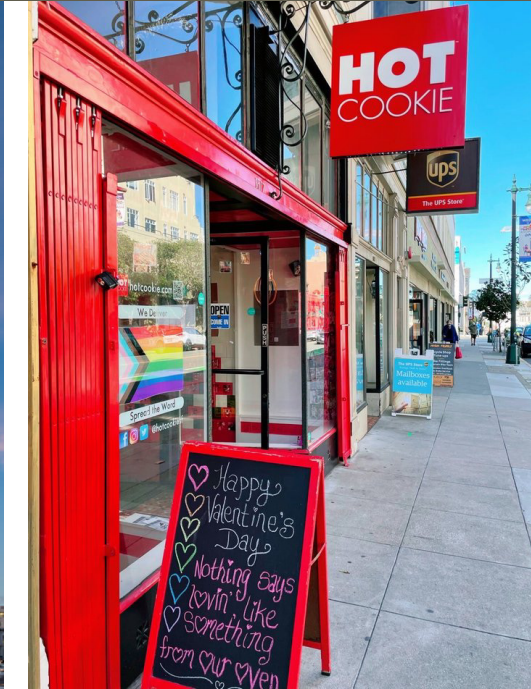 HOT
COOKIE
ups
The UPS Store
hotcookie.com
We Deliver
OPEN
COME IN
Spread the Word
@hotcookie
Mailboxes
available
Happy
Valentine's
Day
Nothing says
lovin' like
something
from our oven